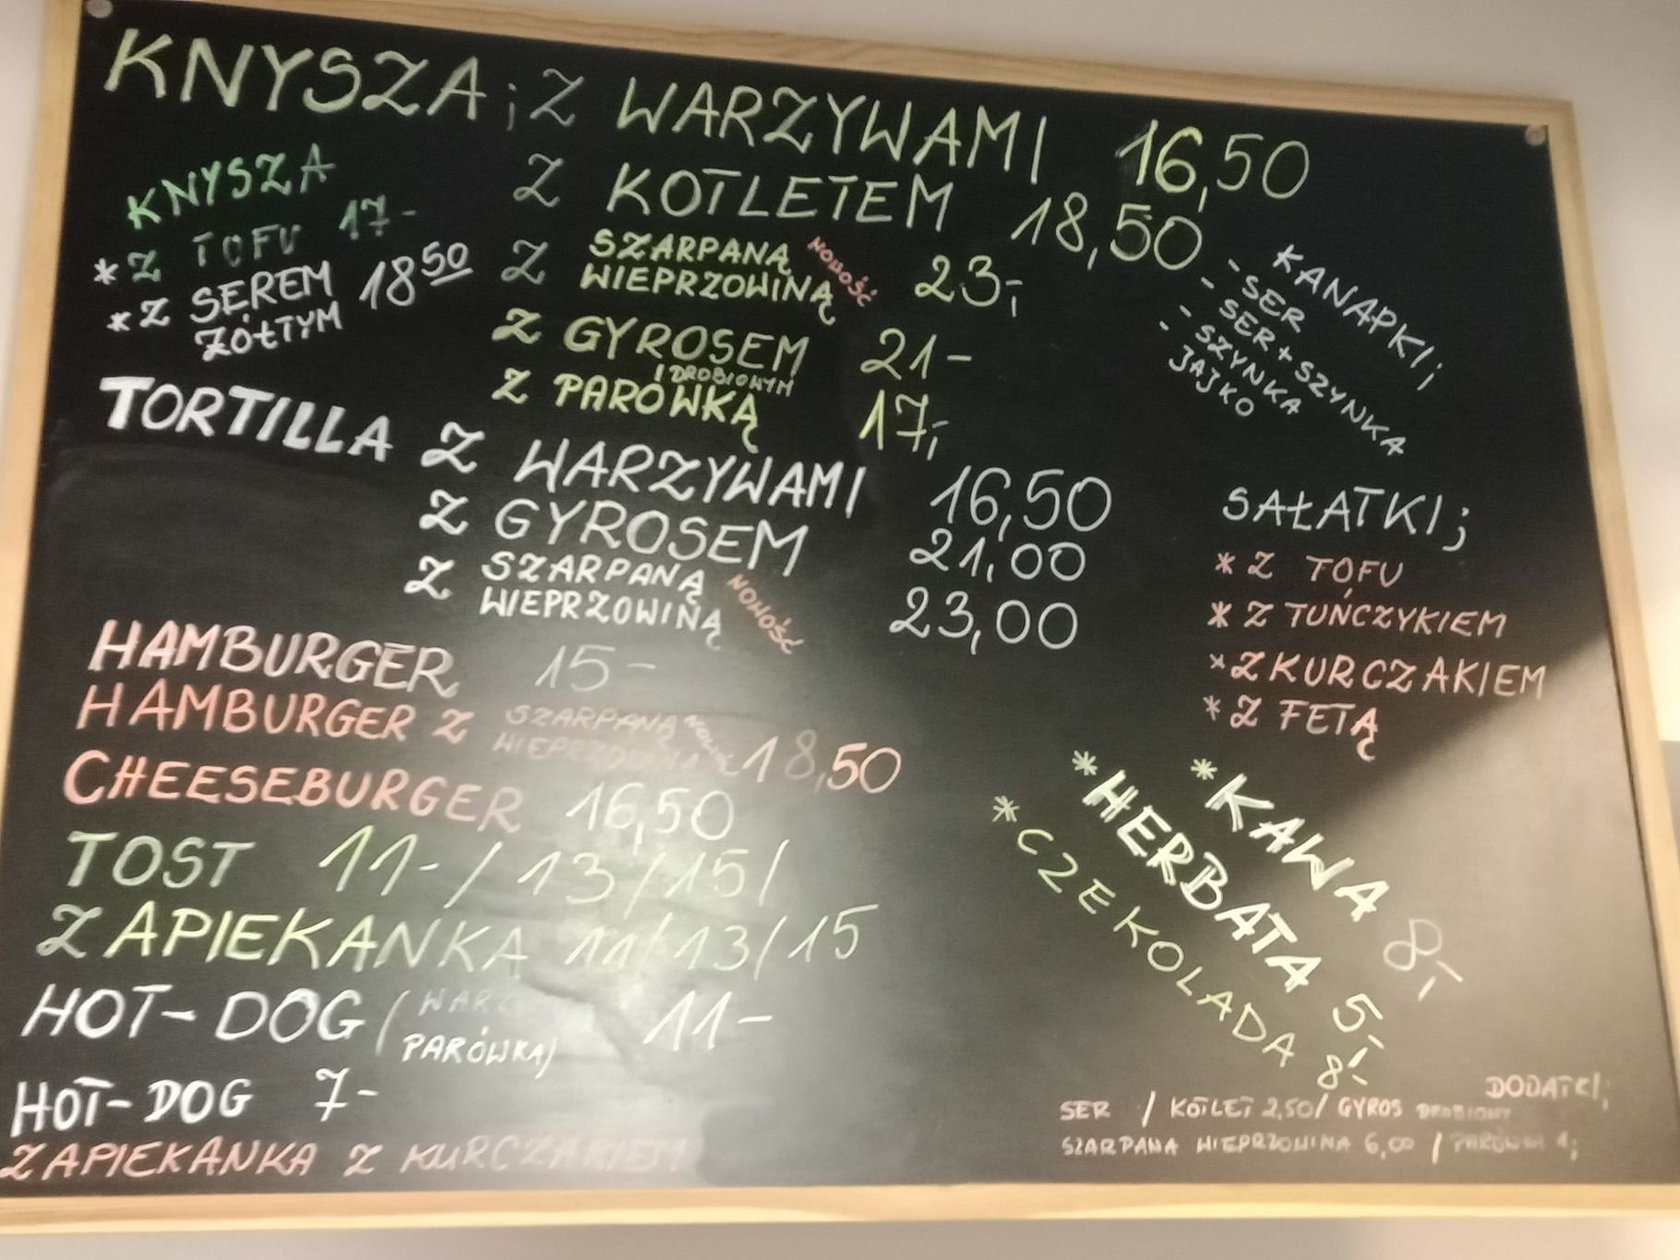 KNYSZA; Z WARZYWAMI 16,50
Z KOTLETEM 18,50
Z SZARPANĄ WIEPRZOWINĄ NOWOŚĆ 23,-
Z GYROSEM DROBIOWYM 21-
Z PARÓWKĄ 17,-
KNYSZA
* Z TOFU 17-
* Z SEREM ŻÓŁTYM 18 50
TORTILLA Z WARZYWAMI 16,50
Z GYROSEM 21,00
Z SZARPANĄ WIEPRZOWINĄ NOWOŚĆ 23,00
HAMBURGER 15-
HAMBURGER Z SZARPANĄ WIEPRZOWINĄ 18,50
CHEESEBURGER 16,50
TOST 11-/13/15/
ZAPIEKANKA 11/13/15
HOT-DOG / PARÓWKA/ 11-
HOT-DOG 7-
ZAPIEKANKA Z KURCZAKIEM
KANAPKI;
- SER
- SER+SZYNKA
- SZYNKA
- JAJKO
SAŁATKI;
* Z TOFU
* Z TUŃCZYKIEM
* Z KURCZAKIEM
* Z FETĄ
* KAWA 8,-
* HERBATA 5,-
* CZEKOLADA 8,-
DODATKI;
SER / KOTLET 2,50/ GYROS DROBIOWY
SZARPANA WIEPRZOWINA 6,00 /